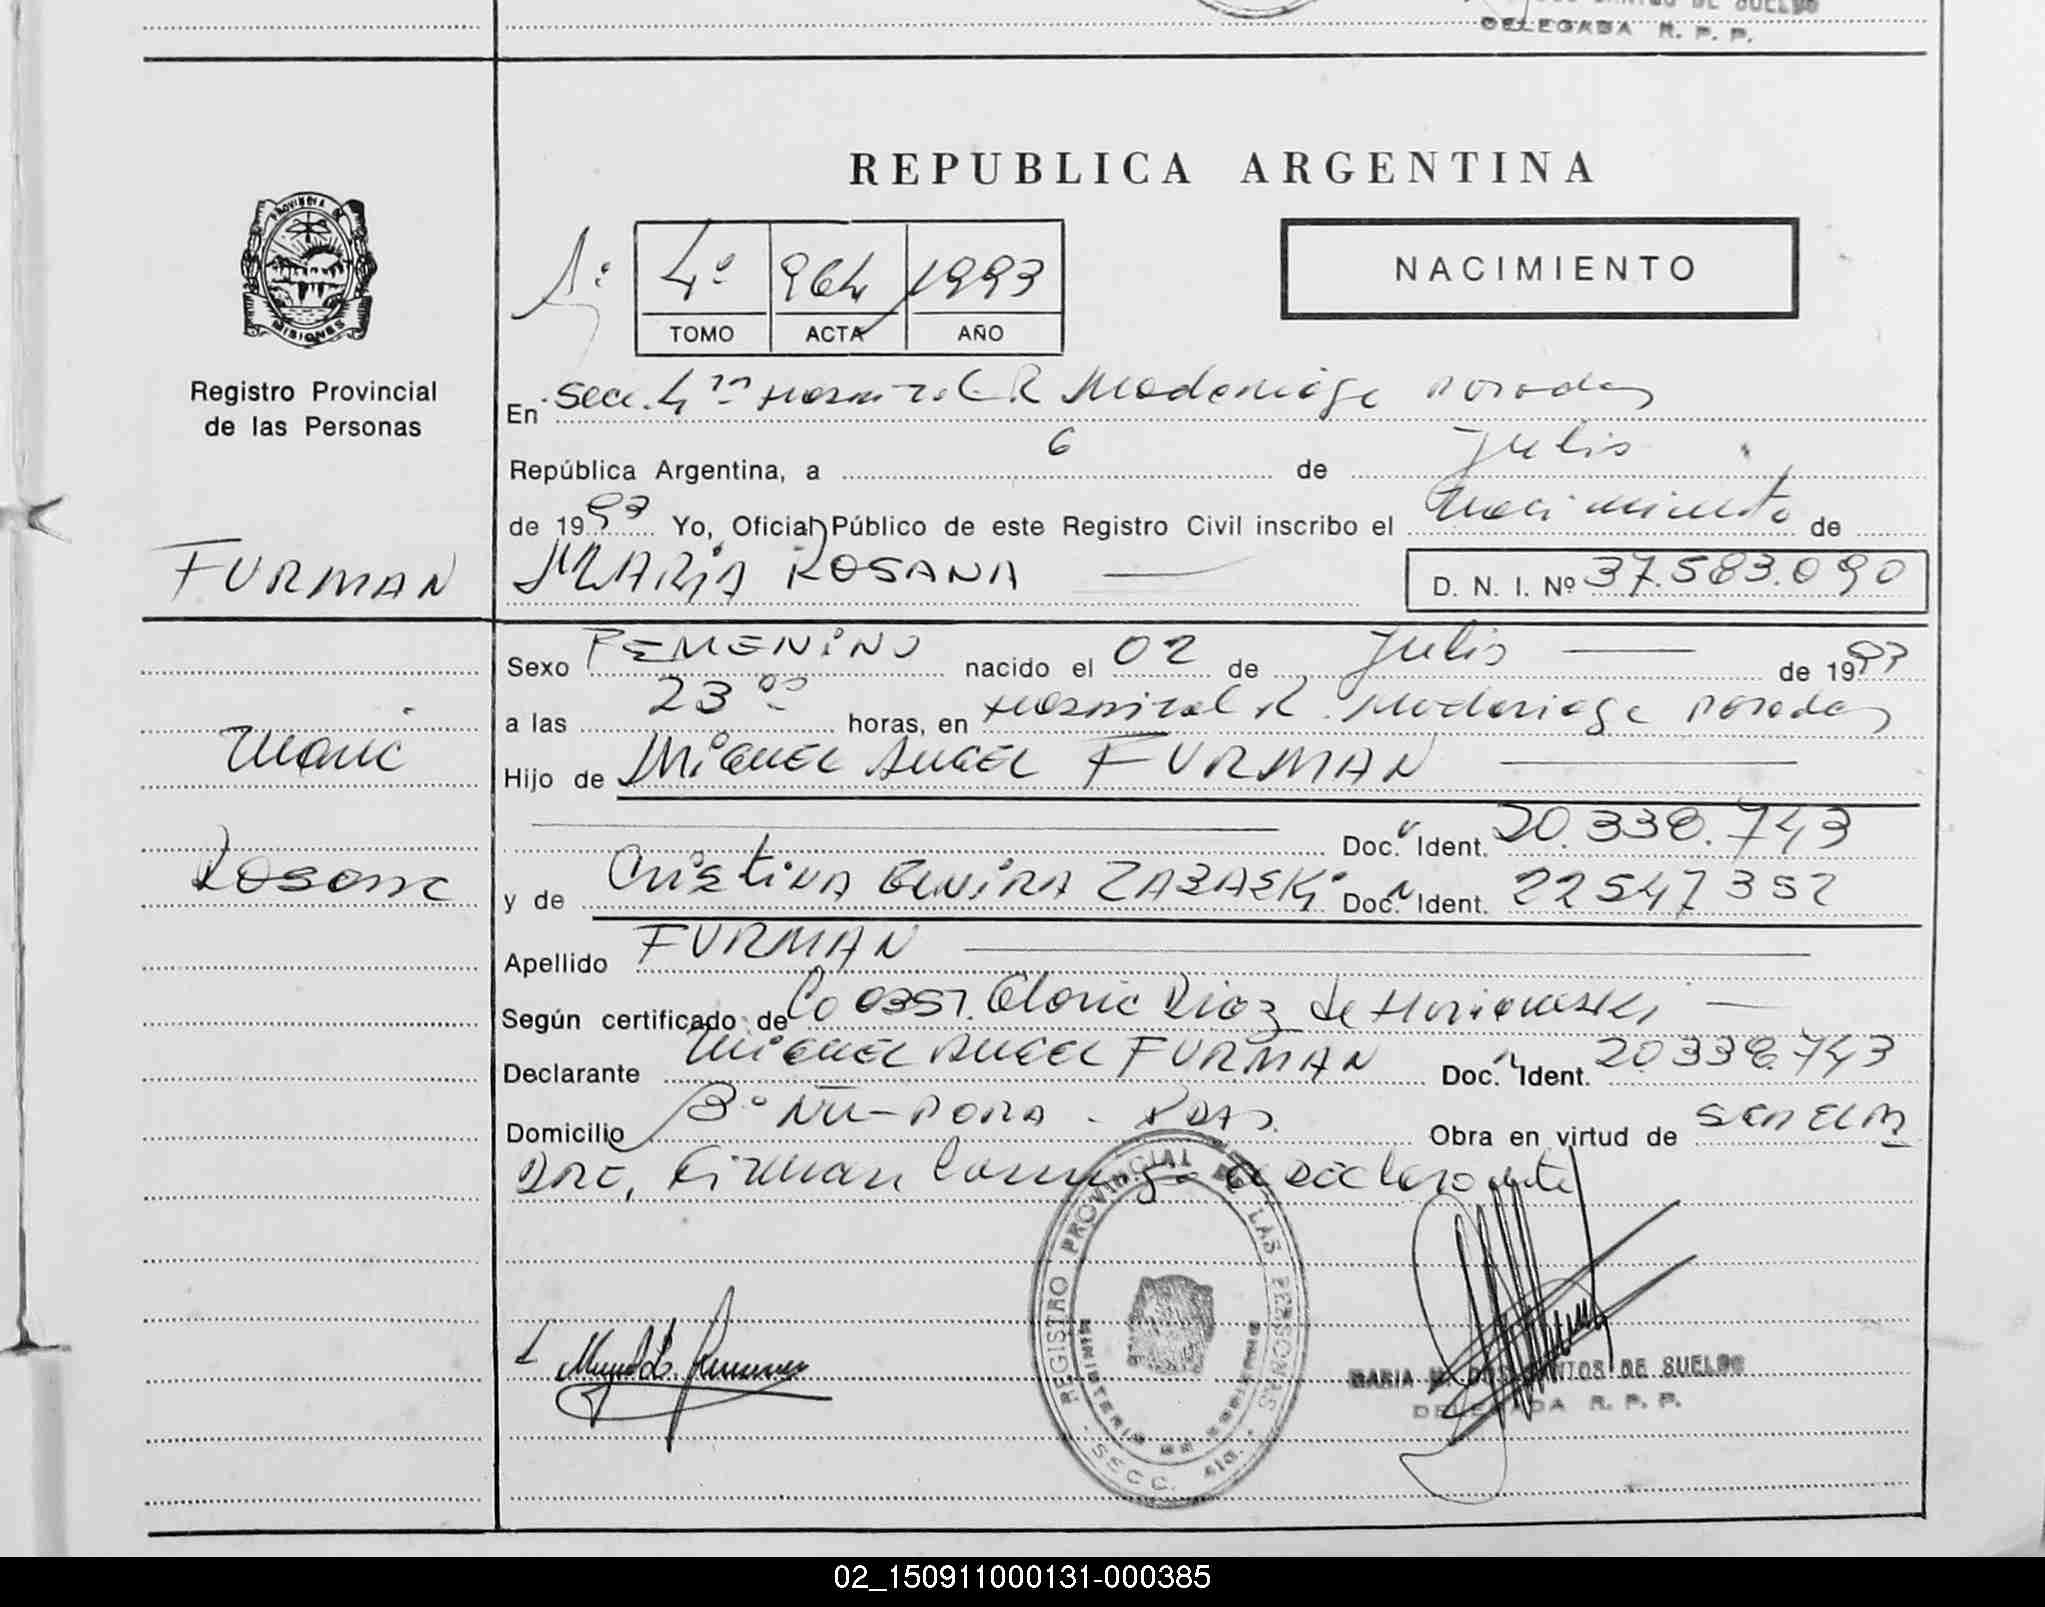 DELEGADA R. P. P.
REPUBLICA ARGENTINA
PROVINCIA DE
MISIONES
Registro Provincial
de las Personas
1º 4º 964 1993
TOMO ACTA AÑO
NACIMIENTO
En Secc. 4ta Hospital R Madariaga Posadas
República Argentina, a 6 de Julio
de 1993 Yo, Oficial Público de este Registro Civil inscribo el Nacimiento de
FURMAN MARIA ROSANA D. N. I. Nº 37.583.090
Sexo FEMENINO nacido el 02 de Julio de 1993
a las 23 00 horas, en Hospital R. Madariaga Posadas
Maria
Hijo de MIGUEL ANGEL FURMAN
Doc. Ident. 20.338.743
Rosana
y de Cristina ZABASKI Doc. Ident. 22547352
Apellido FURMAN
Según certificado de Co 0357. Gloria Diaz de
Declarante MIGUEL ANGEL FURMAN Doc. Ident. 20338.743
Domicilio Bº ÑU-PORA - PDAS. Obra en virtud de SER EL P
DRE, Firman Conmigo el Declarante
REGISTRO PROVINCIAL DE LAS PERSONAS
MINISTERIO DE GOBIERNO
SECC. 4ta.
MARIA DOS SANTOS DE SUELDO
DELEGADA R. P. P.
02_150911000131-000385